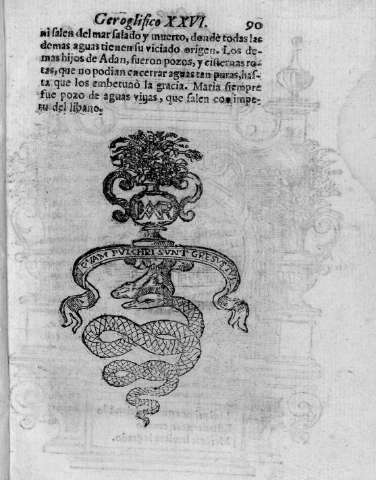 Geroglifico XXVI. 90
ni salen del mar salado y muerto, donde todas las
demas aguas tienen su viciado origen. Los de-
mas hijos de Adan, fueron pozos, y cisternas ro-
tas, que no podian encerrar aguas tan puras, has-
ta que los embetunò la gracia. Maria siempre
fue pozo de aguas viuas, que salen con impe-
tu del libano.
QVAM PVLCHRI SVNT GRESVS